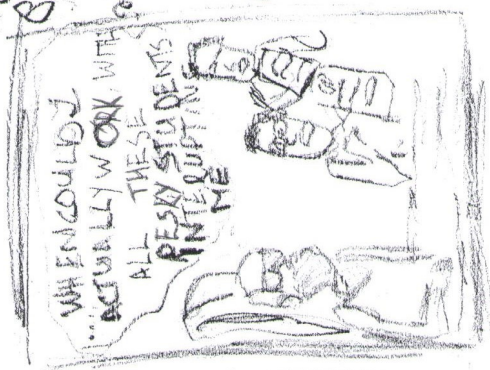 WHEN COULD I
... ACTUALLY WORK WITH
ALL THESE
PESKY STUDENTS
INTERUPTING
ME